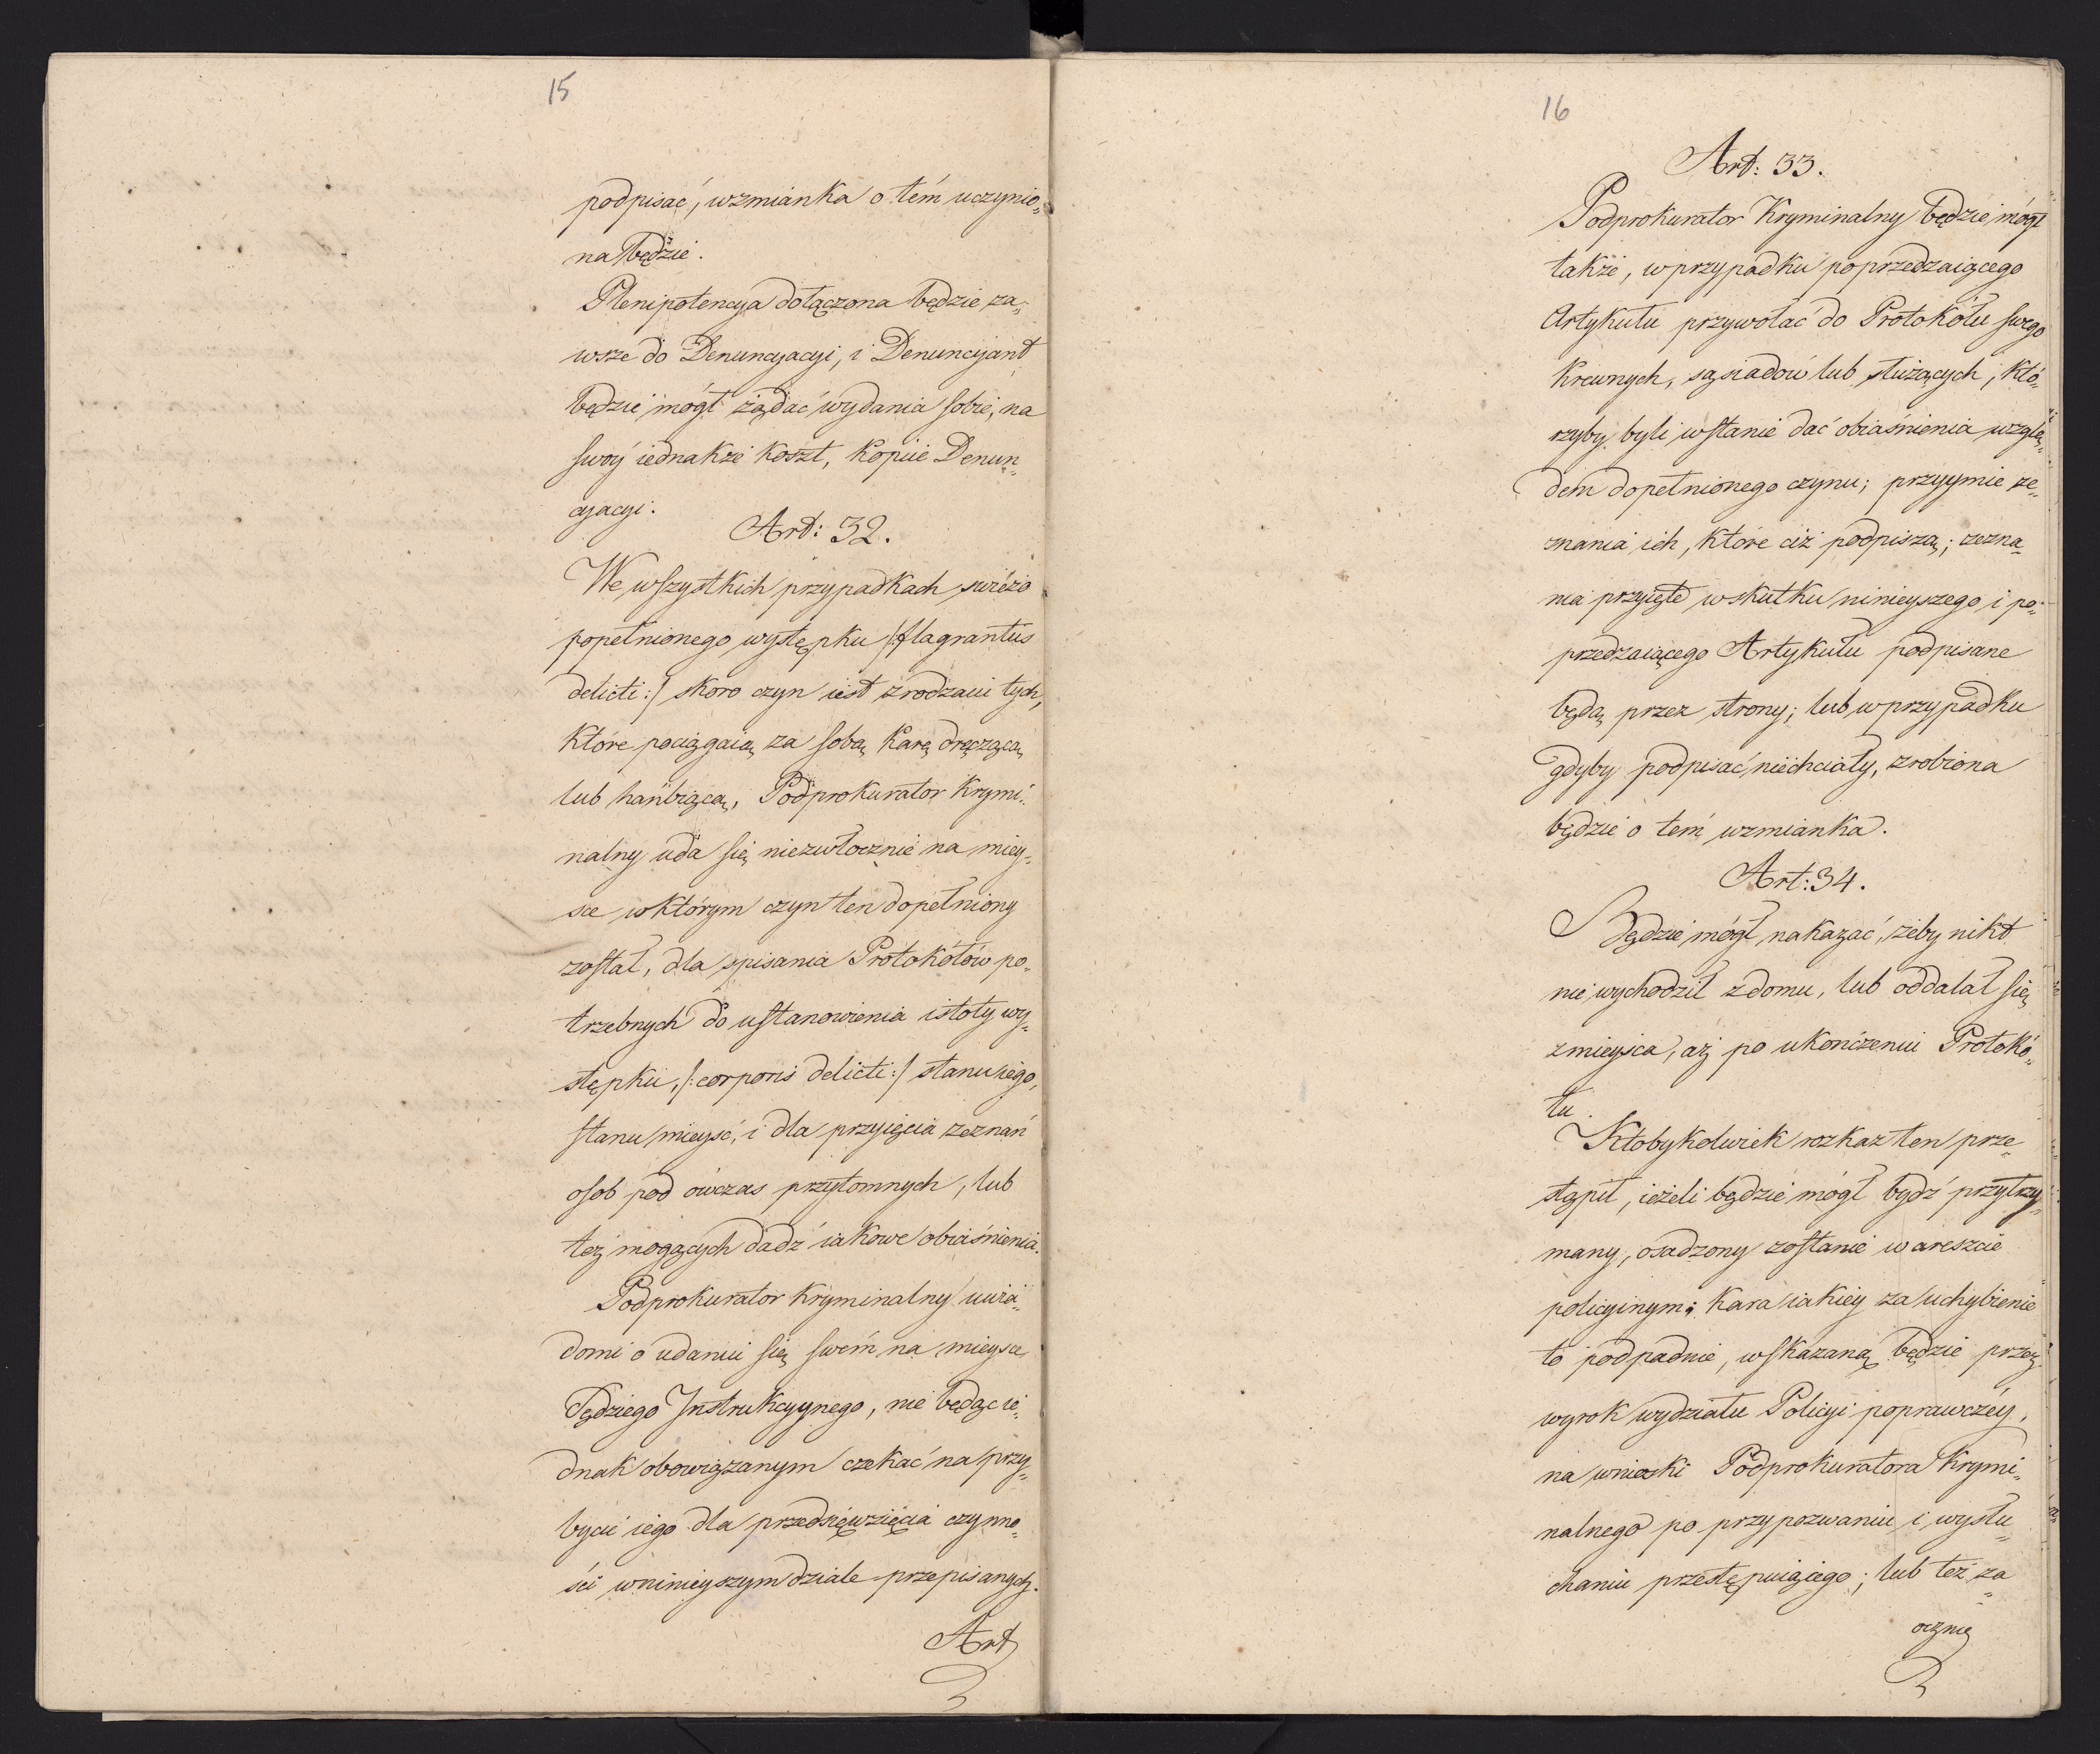 15
podpisać, wzmianka o tém uczynio„
na będzie.
Plenipotencya dołączona będzie za„
wsze do Denuncyacyi, i Denuncyant
będzie mógł żądać wydania sobie, na
swóy iednakże koszt, kopiie Denun„
cyacyi.
Art: 32.
We wszystkich przypadkach swiéżo
popełnionego występku /:flagrantus
delicti:/ skoro czyn iest z rodzaiu tych,
które pociągaią za sobą karę dręczącą
lub hańbiącą, Podprokurator Krymi„
nalny uda się niezwłocznie na miey„
sce w którym czyn ten dopełniony
został, dla spisania Protokółów po„
trzebnych do ustanowienia istoty wy„
stępku, /:corporis delicti:/ stanu iego,
stanu mieysć, i dla przyięcia zeznań
osob pod ówczas przytomnych, lub
też mogących dadź iakowe obiaśnienia.
Podprokurator Kryminalny uwia„
domi o udaniu się swém na mieysce
Sędziego Instrukcyynego, nie będąc ie„
dnak obowiązanym czekać na przy„
bycie iego dla przedsięwzięcia czynno„
ści w ninieyszym dziale przepisanych.
Art
16
Art: 33.
Podprokurator Kryminalny będzie mógł
także, w przypadku poprzedzaiącego
Artykułu przywołać do Protokółu swego
krewnych, sąsiadów lub służących, któ„
rzyby byli w stanie dać obiaśnienia wzglę„
dem dopełnionego czynu; przyymie ze„
znania ich, które ciż podpiszą; zezna„
nia przyięte w skutku ninieyszego i po„
przedzaiącego Artykułu podpisane
będą przez strony; lub w przypadku
gdyby podpisać niechciały, zrobiona
będzie o tem wzmianka.
Art: 34.
Będzie mógł nakazać, żeby nikt
nie wychodził z domu, lub oddalał się
z mieysca, aż po ukończeniu Protokó„
łu.
Ktobykolwiek rozkaz ten prze„
stąpił, ieżeli będzie mógł bydź przytrzy„
many, osadzony zostanie w areszcie
policyinym; kara iakiey za uchybienie
to podpadnie, wskazaną będzie przez
wyrok wydziału Policyi poprawczéy,
na wnioski Podprokuratora Krymi„
nalnego po przypozwaniu i wysłu„
chaniu przestępuiącego; lub też za„
ocznie